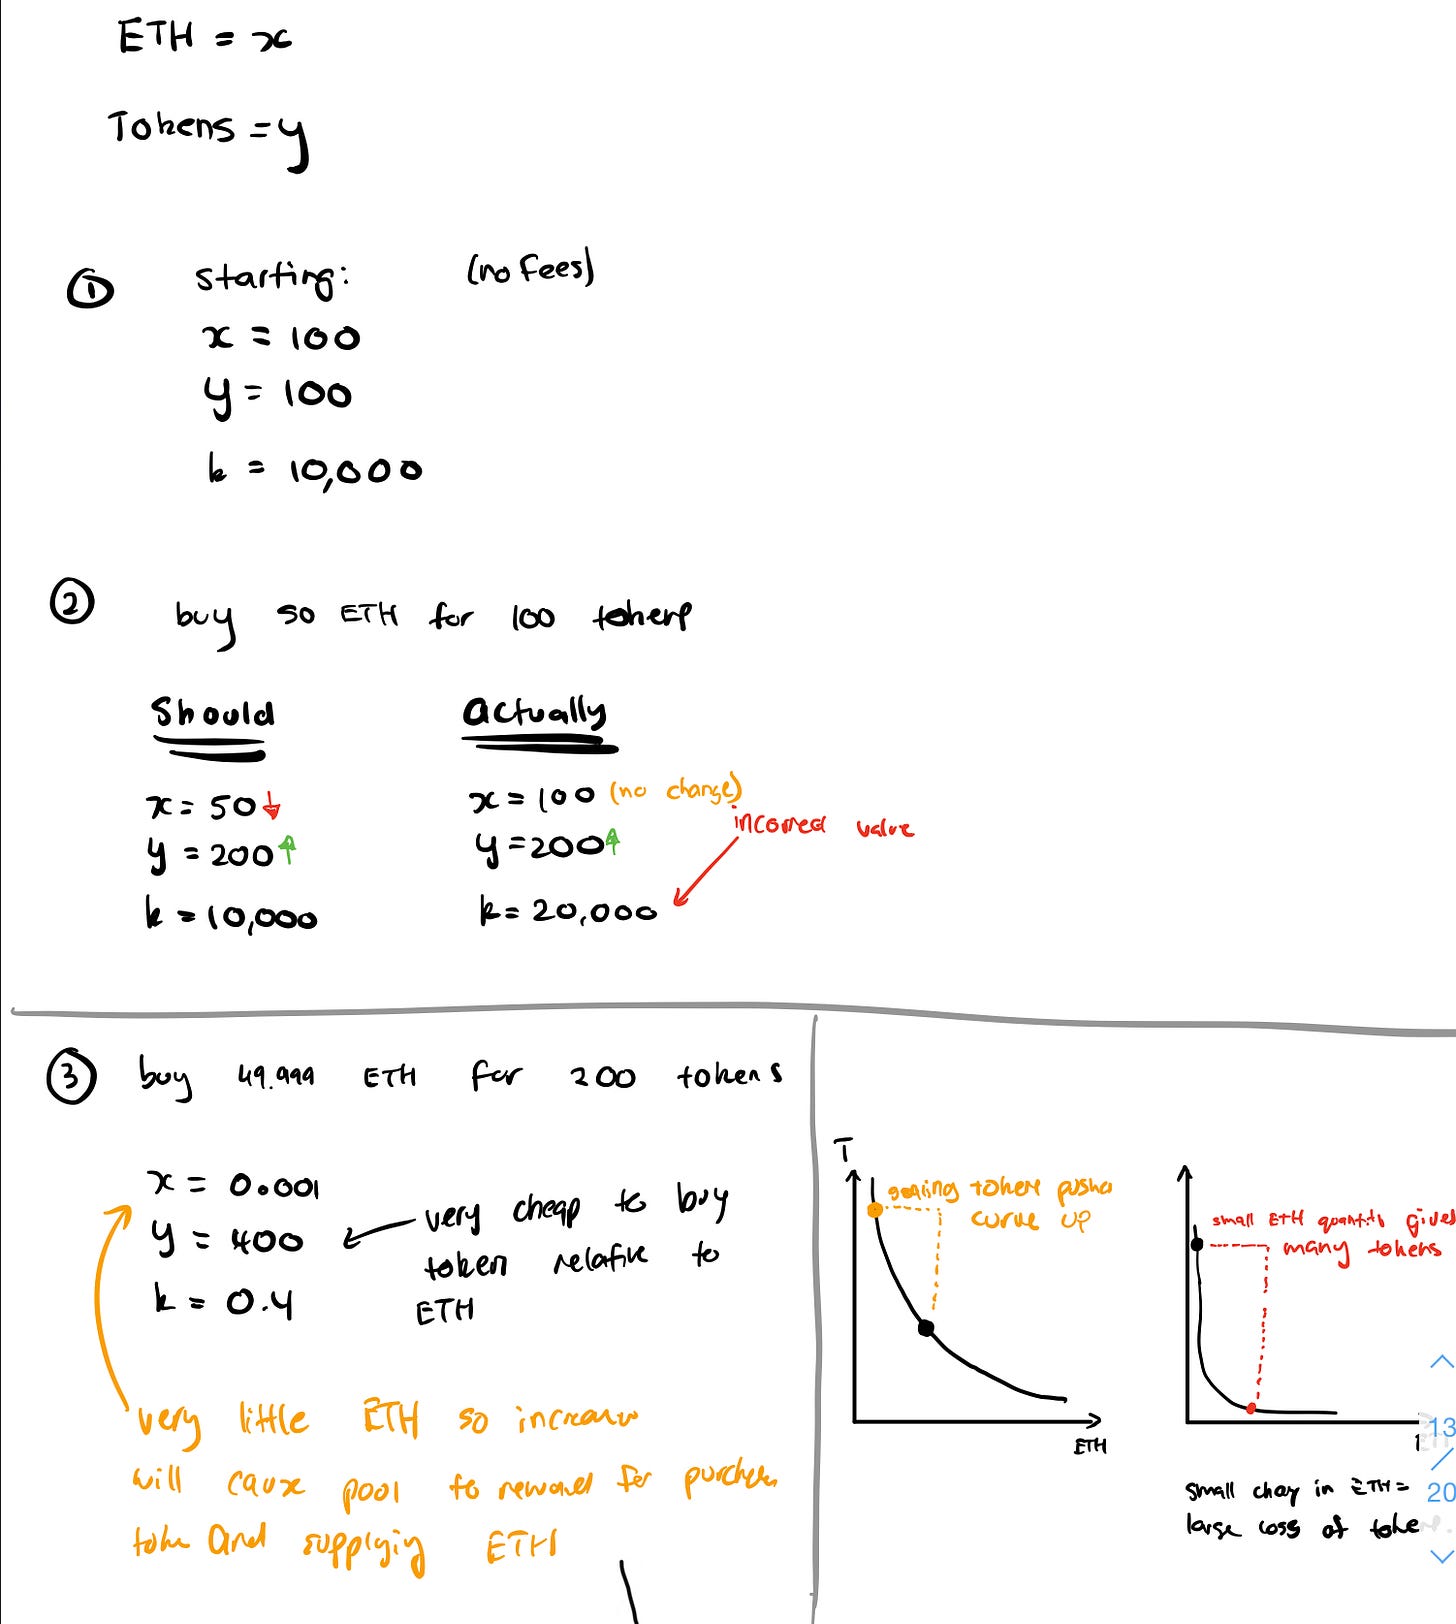 ETH = x
Tokens = y
① starting: (no fees)
x = 100
y = 100
k = 10,000
② buy 50 ETH for 100 tokens
Should
x = 50 ↓
y = 200 ↑
k = 10,000
Actually
x = 100 (no change)
y = 200 ↑
incorrect value
k = 20,000
③ buy 49.999 ETH for 200 tokens
x = 0.001
y = 400
k = 0.4
very cheap to buy
token relative to
ETH
very little ETH so increase
will cause pool to reward for purchase
token and supplying ETH
T
gaining tokens pushes
curve up
ETH
small ETH quantity gives
many tokens
small change in ETH =
large loss of token
13
/
20